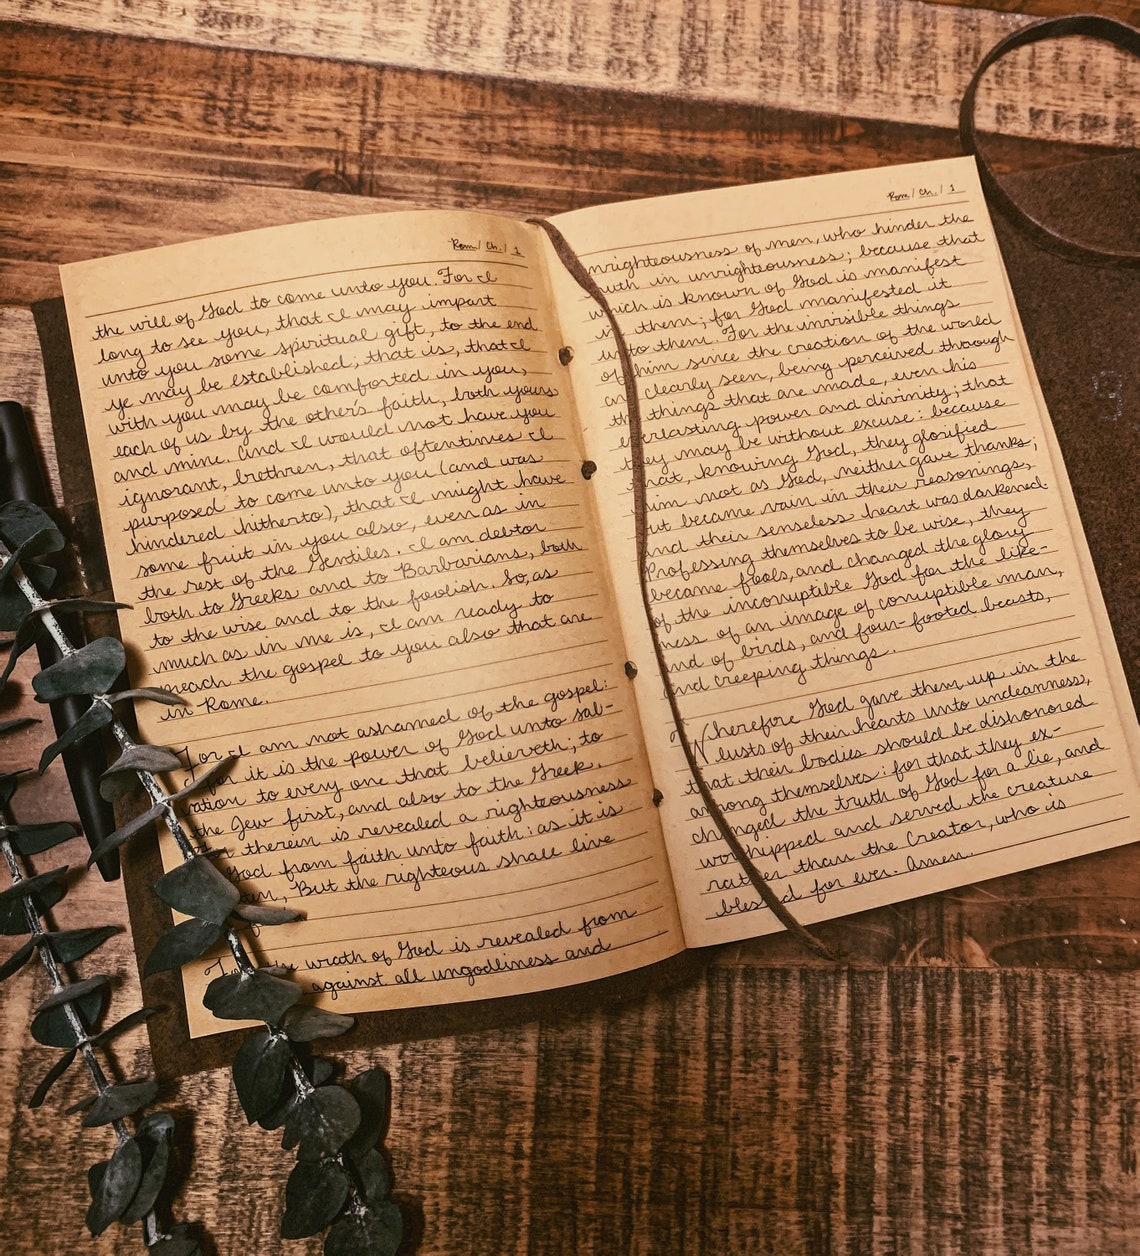 Rom/ Ch./ 1
the will of God to come unto you. For I
long to see you, that I may impart
unto you some spiritual gift, to the end
ye may be established; that is, that I
with you may be comforted in you,
each of us by the other's faith, both yours
and mine. And I would not have you
ignorant, brethren, that oftentimes I
purposed to come unto you (and was
hindered hitherto), that I might have
some fruit in you also, even as in
the rest of the Gentiles. I am debtor
both to Greeks and to Barbarians, both
to the wise and to the foolish. So, as
much as in me is, I am ready to
preach the gospel to you also that are
in Rome.
For I am not ashamed of the gospel:
for it is the power of God unto sal-
vation to every one that believeth; to
the Jew first, and also to the Greek.
therein is revealed a righteousness
God from faith unto faith: as it is
But the righteous shall live
wrath of God is revealed from
against all ungodliness and
Rom/ Ch./ 1
unrighteousness of men, who hinder the
truth in unrighteousness; because that
which is known of God is manifest
in them; for God manifested it
unto them. For the invisible things
of him since the creation of the world
are clearly seen, being perceived through
the things that are made, even his
everlasting power and divinity; that
they may be without excuse: because
that, knowing God, they glorified
him not as God, neither gave thanks;
but became vain in their reasonings,
and their senseless heart was darkened.
Professing themselves to be wise, they
became fools, and changed the glory
of the incorruptible God for the like-
ness of an image of corruptible man,
and of birds, and four-footed beasts,
and creeping things.
Wherefore God gave them up in the
lusts of their hearts unto uncleanness,
that their bodies should be dishonored
among themselves: for that they ex-
changed the truth of God for a lie, and
worshipped and served the creature
rather than the Creator, who is
blessed for ever. Amen.